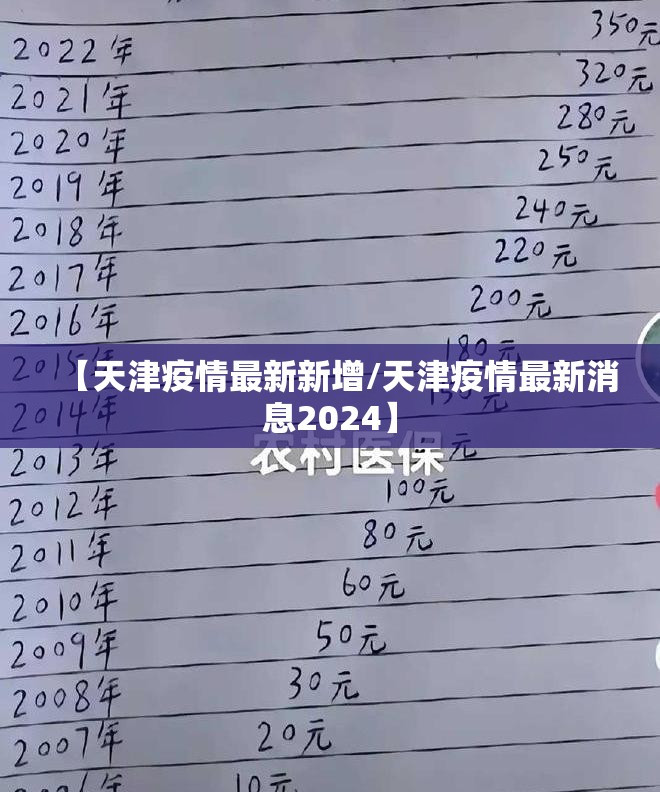 2022年 350元
2021年 320元
2020年 280元
2019年 250元
2018年 240元
2017年 220元
2016年 200元
2015年 180元
【天津疫情最新新增/天津疫情最新消
息2024】
2014年 元
2013年 元
农村医保
2012年 100元
2011年 80元
2010年 60元
2009年 50元
2008年 30元
2007年 20元
10元